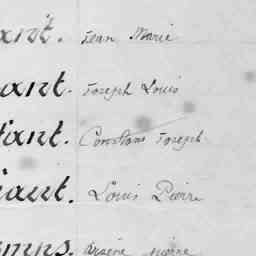 ant. Jean Marie
ant. Joseph Louis
tant. Constant Joseph
iant. Louis Pierre